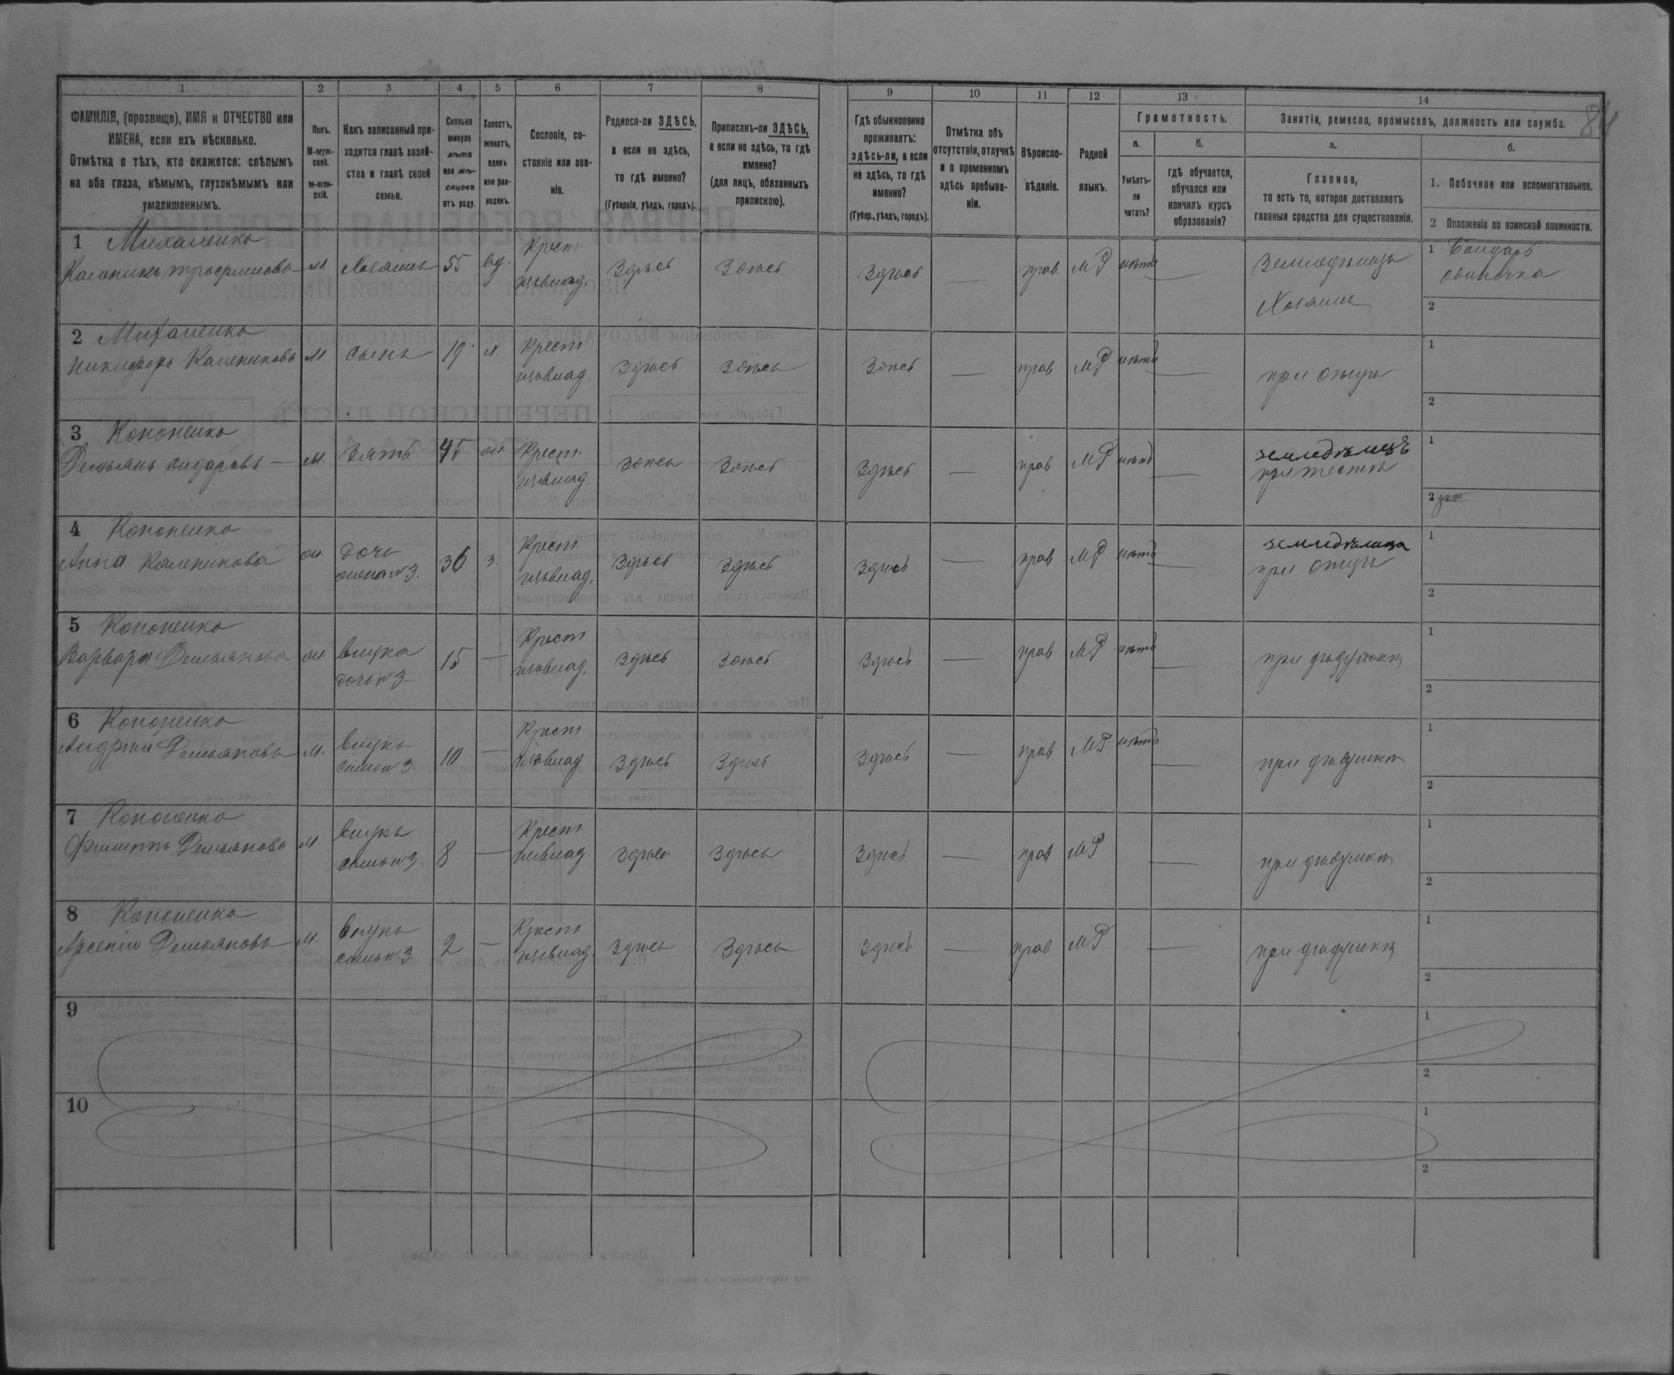 84
1 2 3 4 5 6 7 8 9 10 11 12 13 14
ФАМИЛІЯ, (прозвище), ИМЯ и ОТЧЕСТВО или
ИМЕНА, если ихъ нѣсколько.
Отмѣтка о тѣхъ, кто окажется: слѣпымъ
на оба глаза, нѣмымъ, глухонѣмымъ или
умалишеннымъ.
Полъ.
М-муж-
ской.
ж-жен-
скій.
Какъ записанный при-
ходится главѣ хозяй-
ства и главѣ своей
семьи.
Сколько
минуло
лѣтъ
или мѣ-
сяцевъ
отъ роду.
Холостъ,
женатъ,
вдовъ
или раз-
веденъ.
Сословіе, со-
стояніе или зва-
ніе.
Родился-ли ЗДѢСЬ,
а если не здѣсь,
то гдѣ именно?
(Губернія, уѣздъ, городъ).
Приписанъ-ли ЗДѢСЬ,
а если не здѣсь, то гдѣ
именно?
(для лицъ, обязанныхъ
припискою).
Гдѣ обыкновенно
проживаетъ:
здѣсь-ли, а если
не здѣсь, то гдѣ
именно?
(Губер., уѣздъ, городъ).
Отмѣтка объ
отсутствіи, отлучкѣ
и о временномъ
здѣсь пребыва-
ніи.
Вѣроиспо-
вѣданіе.
Родной
языкъ.
Грамотность.
а.
Умѣетъ-
ли
читать?
б.
гдѣ обучается,
обучался или
кончилъ курсъ
образованія?
Занятіе, ремесло, промыселъ, должность или служба.
а.
Главное,
то есть то, которое доставляетъ
главныя средства для существованія.
б.
1. Побочное или вспомогательное.
2 Положеніе по воинской повинности.
1 Михаленко
м Хозяинъ 55 вд. Крест. Здѣсь Здѣсь Здѣсь — прав МР нѣтъ — Земледѣлецъ
Хозяинъ
1 Бондарь
2
2 Михаленко
Никифоръ Калениковъ м сынъ 19 х. Крест. Здѣсь Здѣсь Здѣсь — прав МР нѣтъ — при отцѣ
1
2
3 Кононенко
Демьянъ Сидоровъ — м. Зять 45 Крест. Здѣсь Здѣсь Здѣсь — прав МР нѣтъ — земледѣлецъ
при тестѣ
1
2
4 Кононенко
Анна Каленикова дочь
жена №3. 36 з. Крест. Здѣсь Здѣсь Здѣсь — прав МР нѣтъ — земледѣлица
при отцѣ
1
2
5 Кононенко
Варвара Демьянова внучка
дочь №3 15 — Крест. Здѣсь Здѣсь Здѣсь — прав МР нѣтъ — при дѣдушкѣ
1
2
6 Кононенко
Андрей Демьяновъ м. внукъ
сынъ №3. 10 — Крест. Здѣсь Здѣсь Здѣсь — прав МР нѣтъ — при дѣдушкѣ
1
2
7 Кононенко
Филиппъ Демьяновъ м внукъ
сынъ №3. 8 — Крест. Здѣсь Здѣсь Здѣсь — прав МР — при дѣдушкѣ
1
2
8 Кононенко
Арсеній Демьяновъ м. внукъ
сынъ №3 2 — Крест. Здѣсь Здѣсь Здѣсь — прав МР — при дѣдушкѣ
1
2
9
1
2
10
1
2